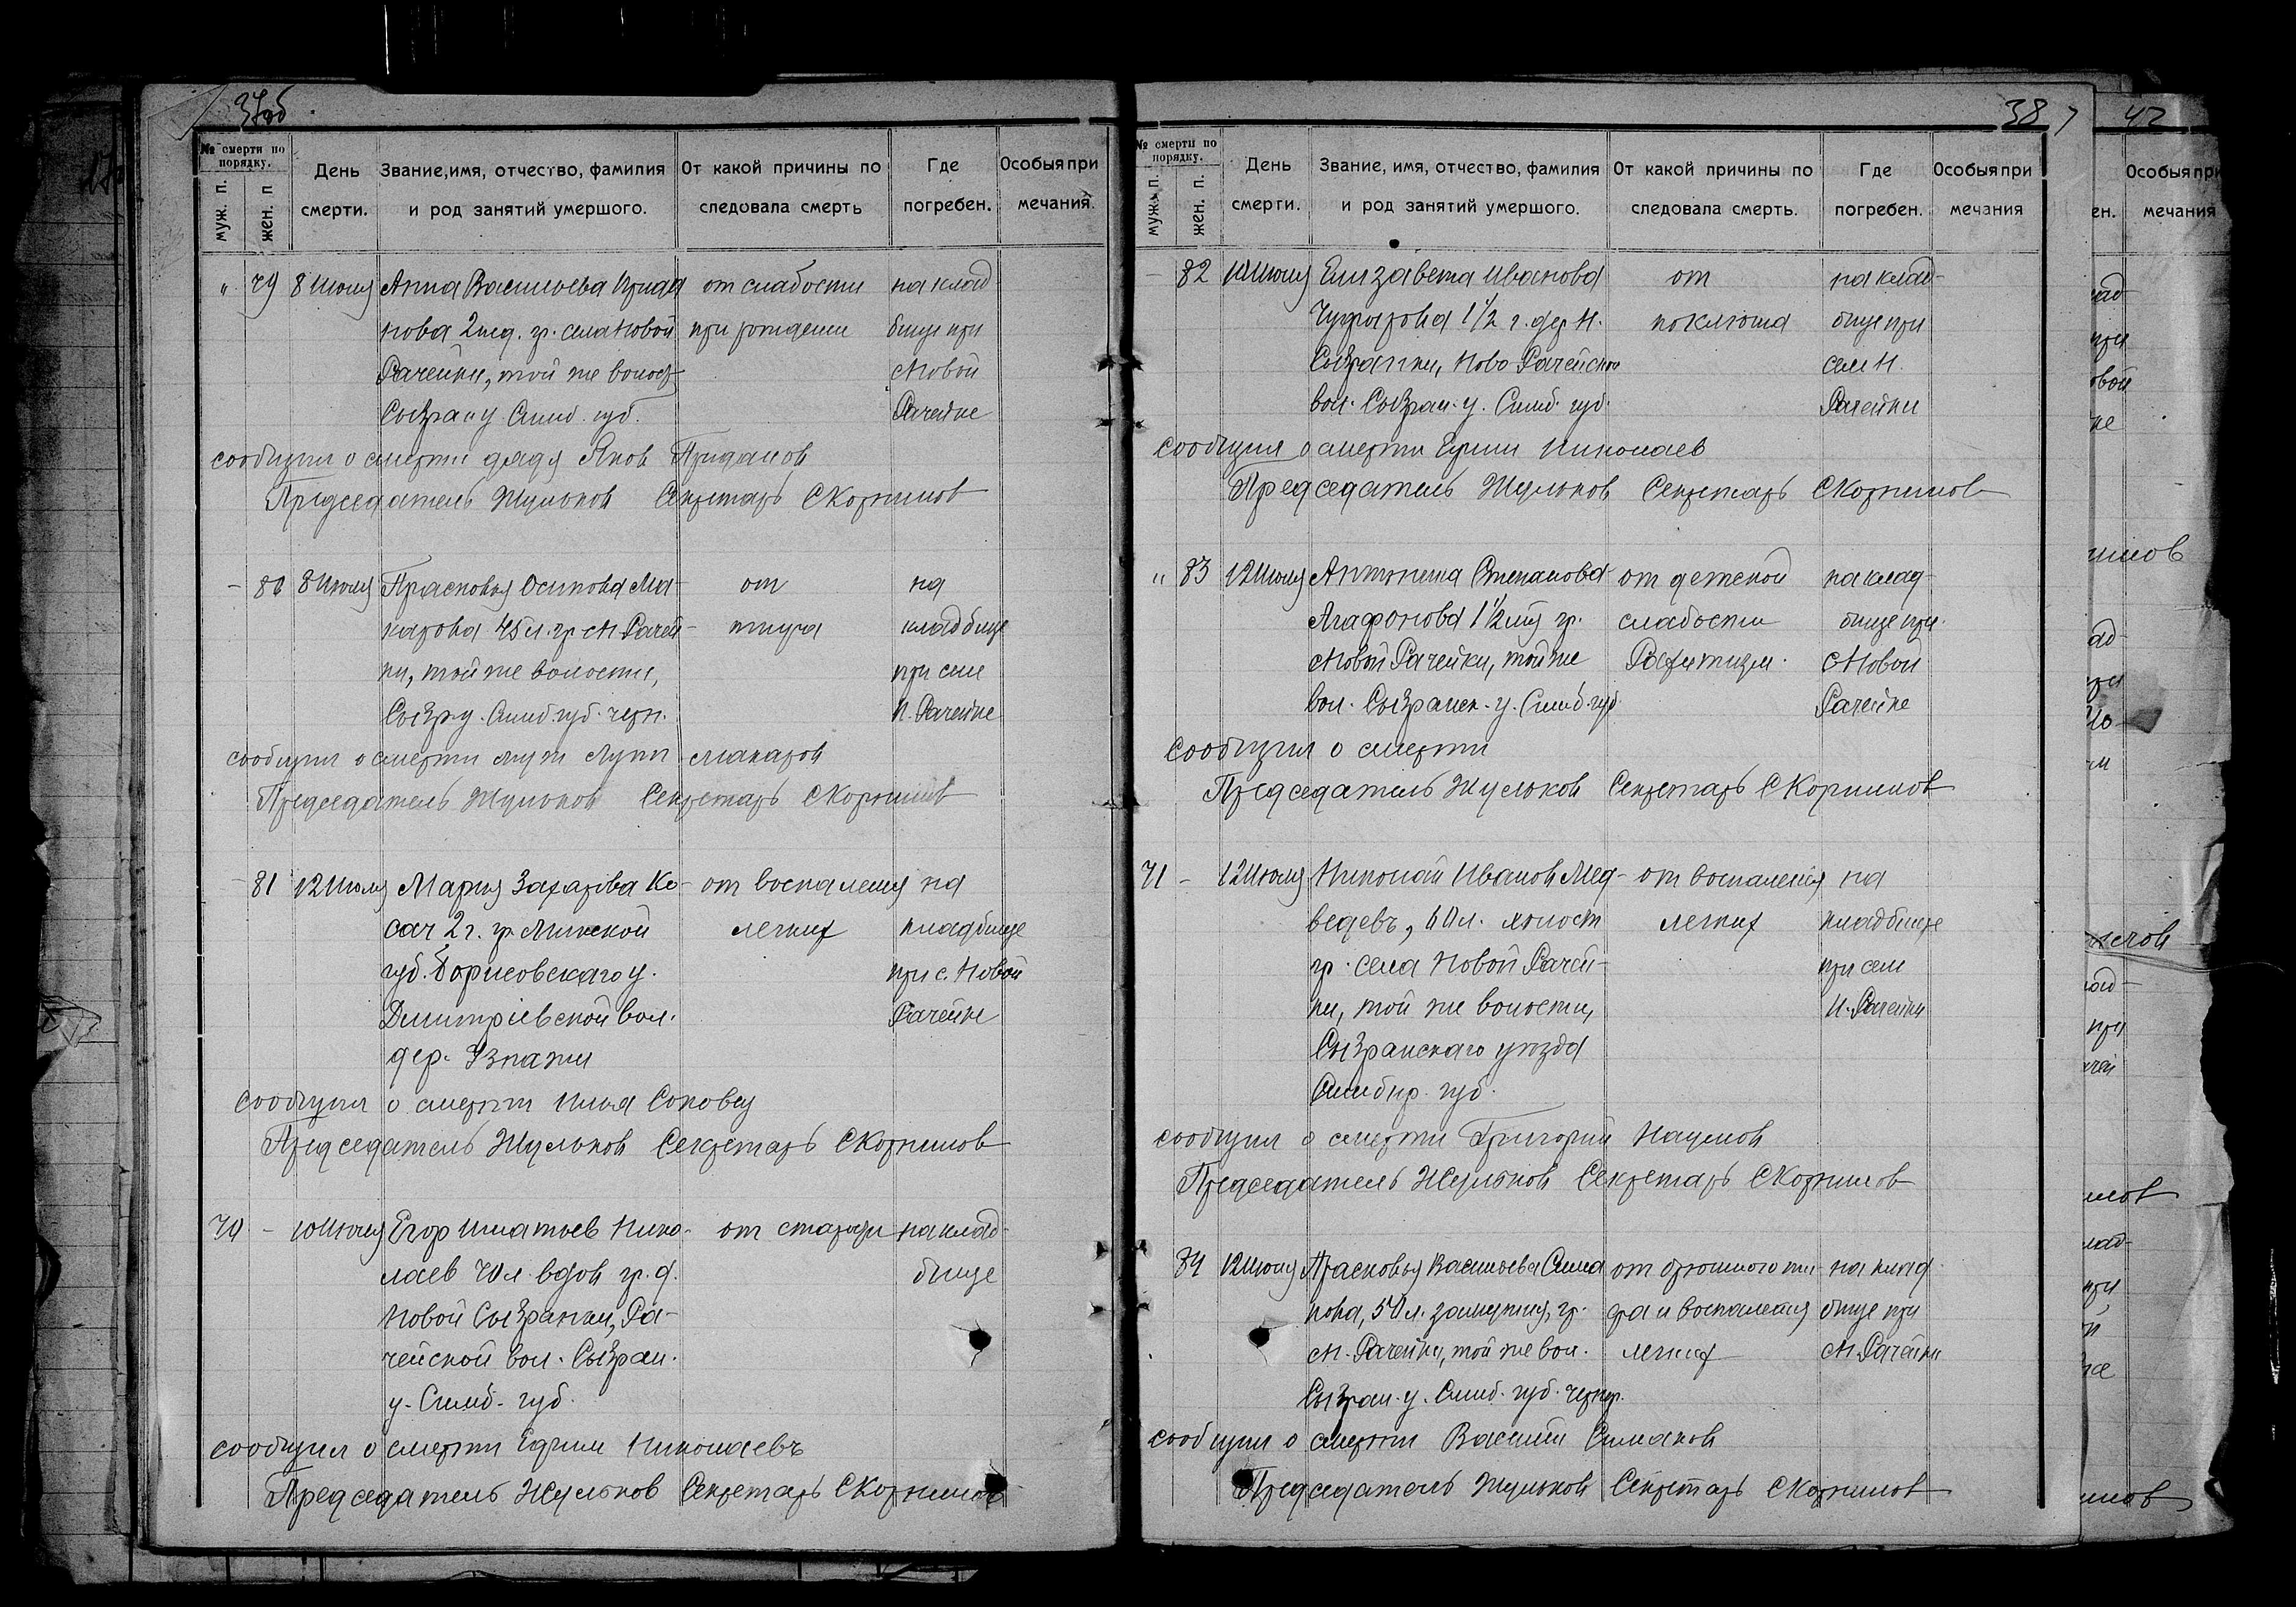 37об
№ смерти по порядку.
муж. п.
жен. п.
День смерти.
Звание, имя, отчество, фамилия и род занятий умершого.
От какой причины последовала смерть
Где погребен.
Особыя примечания.
" 79 8 Июля Анна Васильева Прида от слабости на клад
нова 2 нед. гр. села Новой при рождении бище при
Рачейки, той же волост с Новой
Сызран у. Симб. губ. Рачейке
сообщил о смерти дядя Яков Приданов
Председатель Жульков Секретарь С Корнилов
– 80 8 Июля Прасковья Осипова Ма- от на
карова 45 л. гр с Н. Рачей- тифа кладбище
ки, той же волости, при селе
Сызр. у. Симб. губ. черн. Н. Рачейке
сообщил о смерти муж Лупп Макаров
Председатель Жульков Секретарь С Корнилов
– 81 12 Июля Мария Захарова Ко- от воспаления на
сач 2 г. гр. Минской легких кладбище
губ. Борисовскаго у. при с. Новой
Дмитріевской вол. Рачейке
дер. Узнажи
Сообщил о смерти Илья
Председатель Жульков Секретарь С Корнилов
70 – 10 Июля Егор Игнатьев Нико- от старости на клад-
лаев 70 л. вдов гр. д. бище
Новой Сызранки, Ра-
чейской вол. Сызран.
у. Симб. губ.
сообщил о смерти Ефим Николаевъ
Председатель Жульков Секретарь С Корнилов
38
№ смерти по порядку.
муж. п.
жен. п.
День смерти.
Звание, имя, отчество, фамилия и род занятий умершого.
От какой причины последовала смерть.
Где погребен.
Особыя примечания
– 82 10 Июля Елизавета Иванова от на клад-
Чуфарова 1 1/2 г. дер Н. поклюша бище при
Сызранки, Ново Рачейской селе Н.
вол. Сызран. у. Симб. губ. Рачейки
сообщил о смерти Ефим Николаев
Председатель Жульков Секретарь С Корнилов
" 83 12 Июля Антонина Степанова от детской на клад-
Агафонова 1 1/2 гр. слабости бище при
с Новой Рачейки, той же Рахитизм. с Новой
вол. Сызранск. у. Симб. губ Рачейке
сообщил о смерти
Председатель Жульков Секретарь С Корнилов
71 – 12 Июля Николай Иванов Мед- от воспаления на
ведевъ, 60 л. холост легких кладбище
гр. села Новой Рачей- при селе
ки, той же волости, Н. Рачейки
Сызранскаго уезда
Симбир. губ.
сообщил о смерти Григорий Наумов
Председатель Жульков Секретарь С Корнилов
84 12 Июля Прасковья Васильева Сима от брюшного ти- на клад
кова, 50 л. замужняя, гр. фа и воспаления бище при
с Н. Рачейки, той же вол. легких с Н. Рачейки
Сызран. у. Симб. губ.
сообщил о смерти Василий Симаков
Председатель Жульков Секретарь С Корнилов
42
Особыя примечания